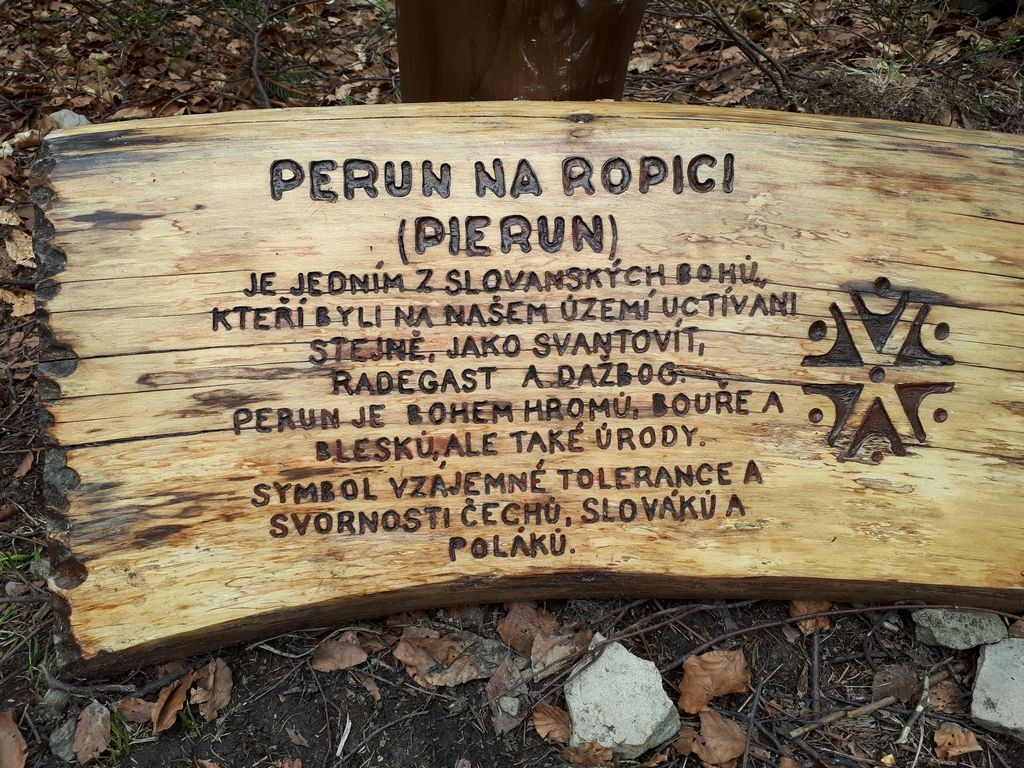 PERUN NA ROPICI
(PIERUN)
JE JEDNÍM Z SLOVANSKÝCH BOHŮ,
KTEŘÍ BYLI NA NAŠEM ÚZEMÍ UCTÍVANI
STEJNĚ, JAKO SVANTOVÍT,
RADEGAST A DAŽBOG.
PERUN JE BOHEM HROMŮ, BOUŘE A
BLESKŮ, ALE TAKÉ ÚRODY.
SYMBOL VZÁJEMNÉ TOLERANCE A
SVORNOSTI ČECHŮ, SLOVÁKŮ A
POLÁKŮ.